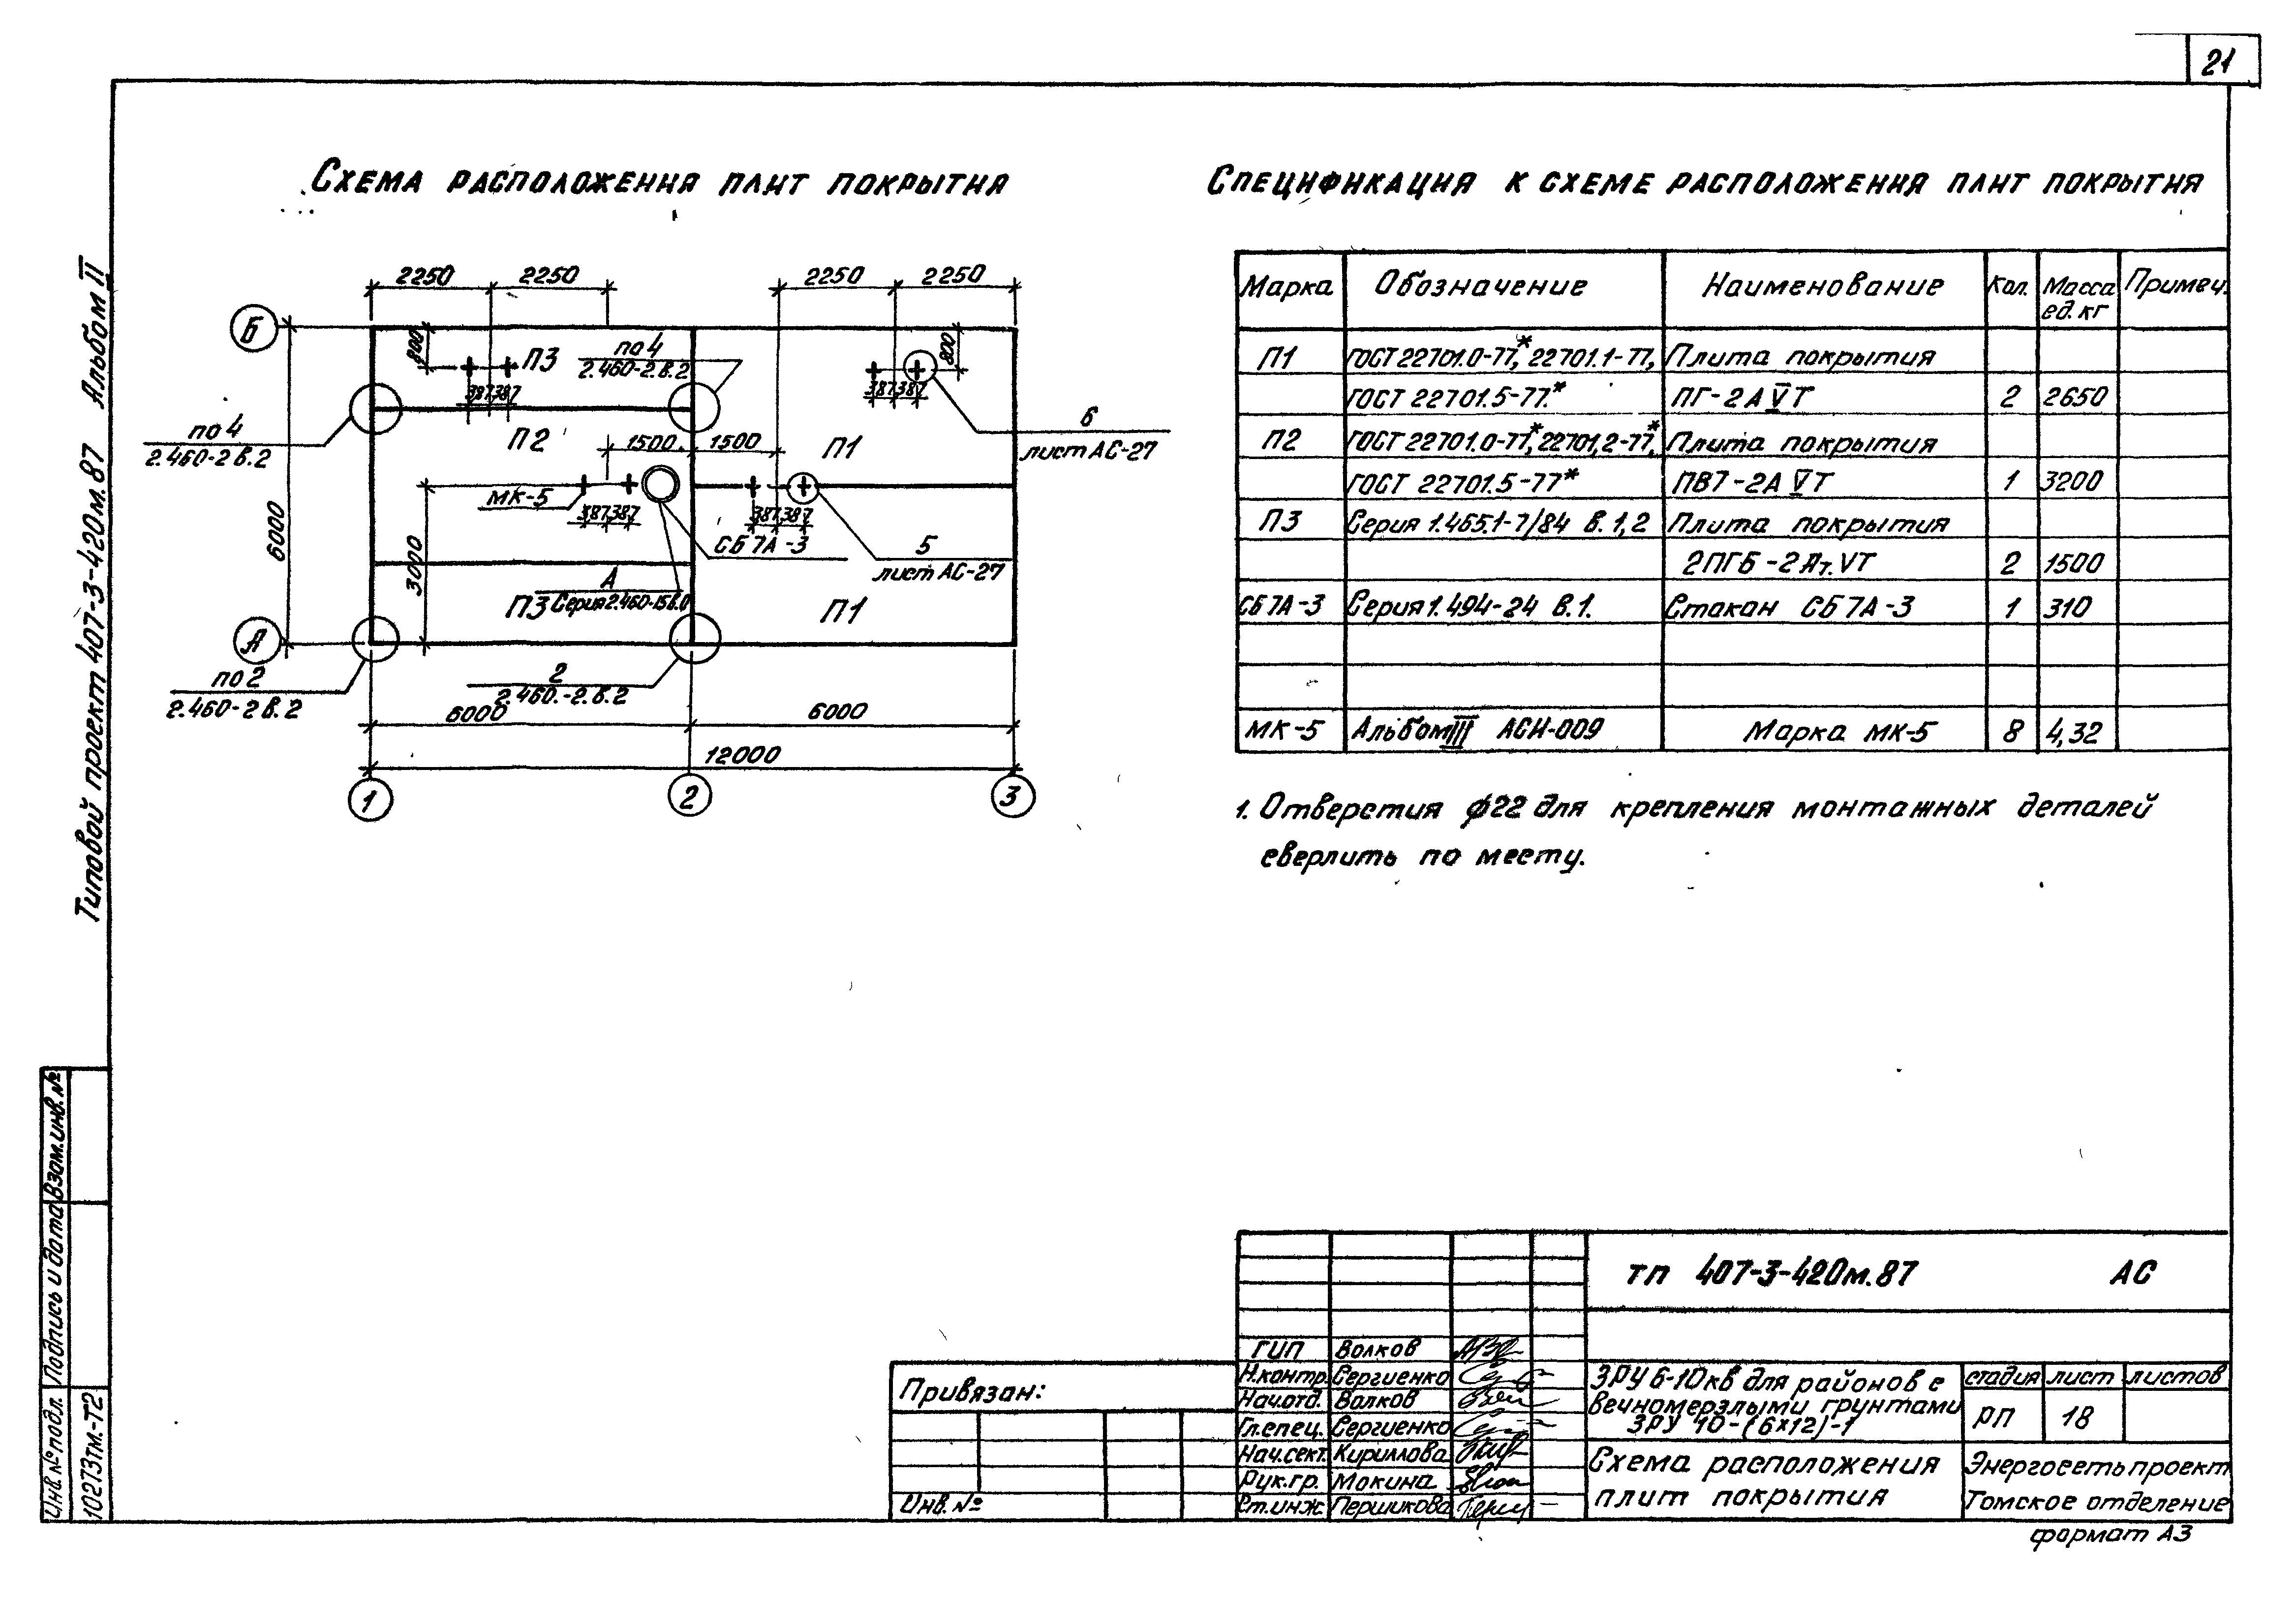 21
Схема расположения плит покрытия
Спецификация к схеме расположения плит покрытия
Типовой проект 407-3-420м.87 Альбом II
2250 2250 2250 2250
Б
800
П3
по 4
2.460-2.в.2
800
387 387
387 387
6
лист АС-27
по 4
2.460-2в.2
П2
1500 1500
П1
6000
МК-5
387 387
387 387
3000
СБ7А-3
5
лист АС-27
А
Серия 2.460-15в.0
П3
П1
А
по 2
2.460-2в.2
2
2.460.-2.в.2
6000 6000
12000
1 2 3
Марка Обозначение Наименование Кол. Масса ед.кг Примеч.
П1 ГОСТ 22701.0-77,* 22701.1-77, Плита покрытия
ГОСТ 22701.5-77.* ПГ-2АVТ 2 2650
П2 ГОСТ 22701.0-77,* 22701.2-77,* Плита покрытия
ГОСТ 22701.5-77* ПВ7-2АVТ 1 3200
П3 Серия 1.465.1-7/84 в.1,2 Плита покрытия
2ПГБ-2Ат.VТ 2 1500
СБ7А-3 Серия 1.494-24 в.1. Стакан СБ7А-3 1 310
МК-5 Альбом III АСИ-009 Марка МК-5 8 4,32
1. Отверстия ϕ22 для крепления монтажных деталей
сверлить по месту.
Взам.инв.№
Подпись и дата
Инв.№подл.
10273тм.-Т2
Привязан:
Инв.№
ТП 407-3-420м.87 АС
ГИП Волков
Н.контр. Сергиенко
Нач.отд. Волков
Гл.спец. Сергиенко
Нач.сект. Кириллова
Рук.гр. Мокина
Ст.инж. Першикова
ЗРУ 6-10кв для районов с
вечномерзлыми грунтами
ЗРУ 10-(6×12)-1
стадия лист листов
РП 18
Схема расположения
плит покрытия
Энергосетьпроект
Томское отделение
формат А3